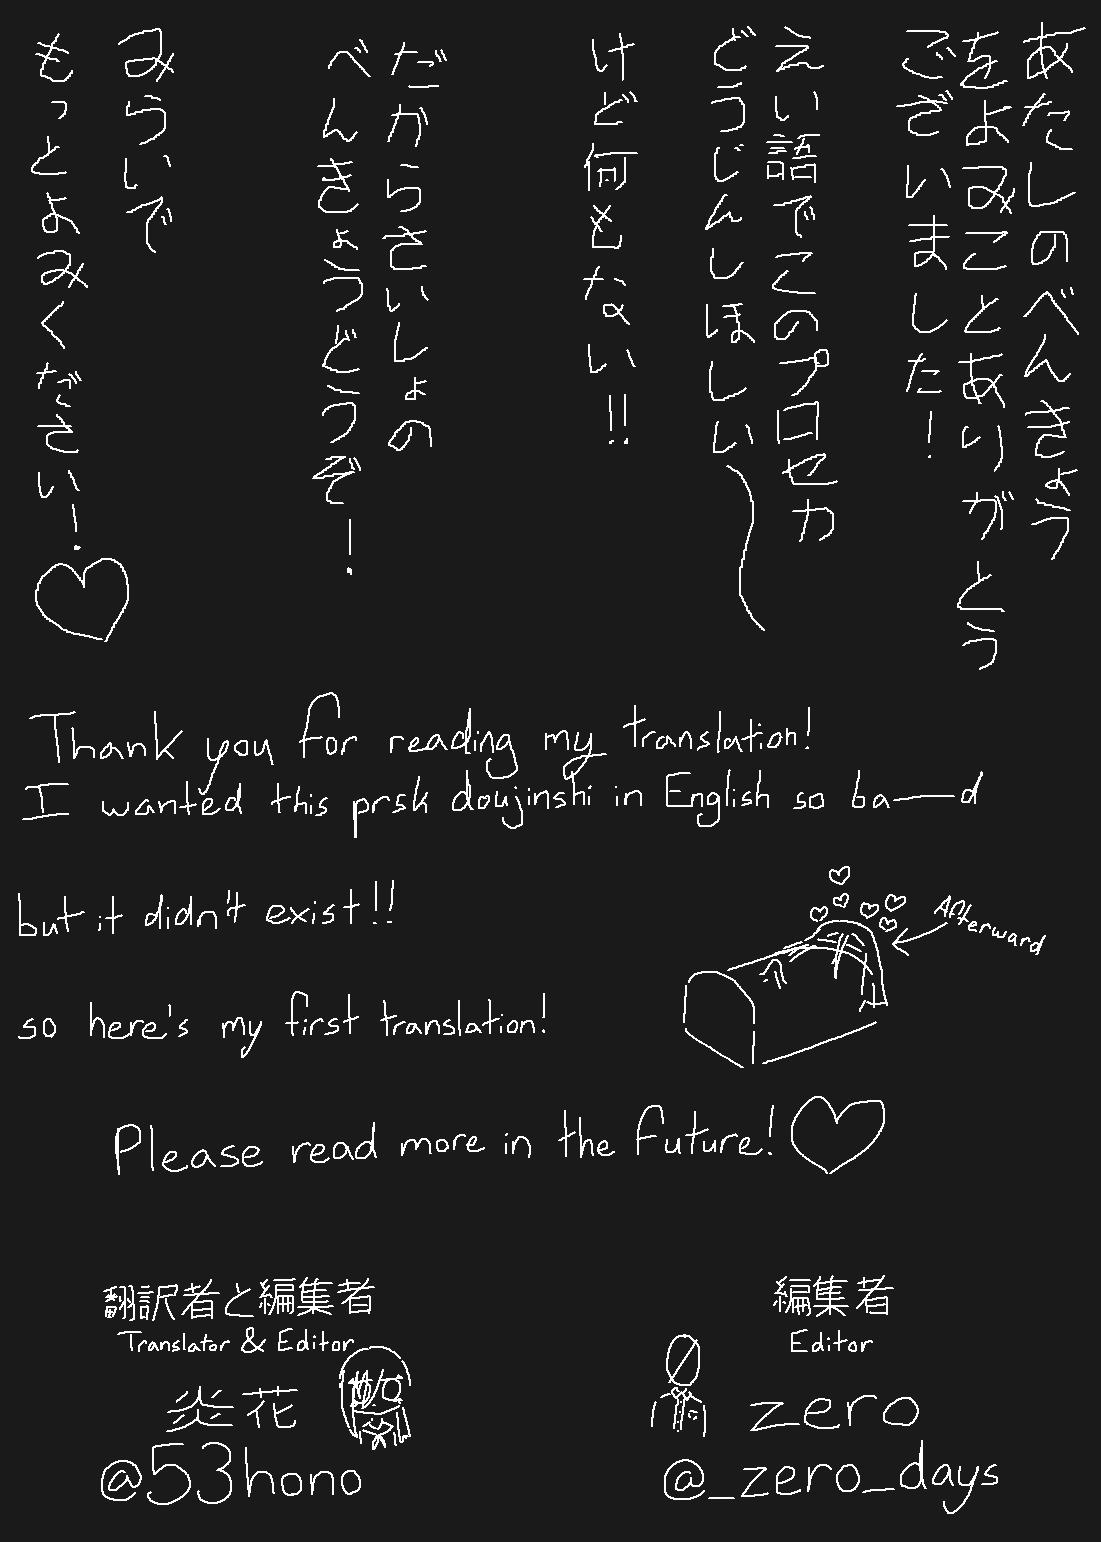 あたしのべんきょう
をよみことありがとう
ございました!
えい語でこのプロセカ
どうじんしほしい〜
けど何もない!!
だからさいしょの
べんきょうどうぞ!
みらいで
もっとよみください!♡
Thank you for reading my translation!
I wanted this prsk doujinshi in English so ba—d
but it didn't exist!!
Afterward
so here's my first translation!
Please read more in the future!♡
翻訳者と編集者
Translator & Editor
炎花
@53hono
編集者
Editor
zero
@_zero_days